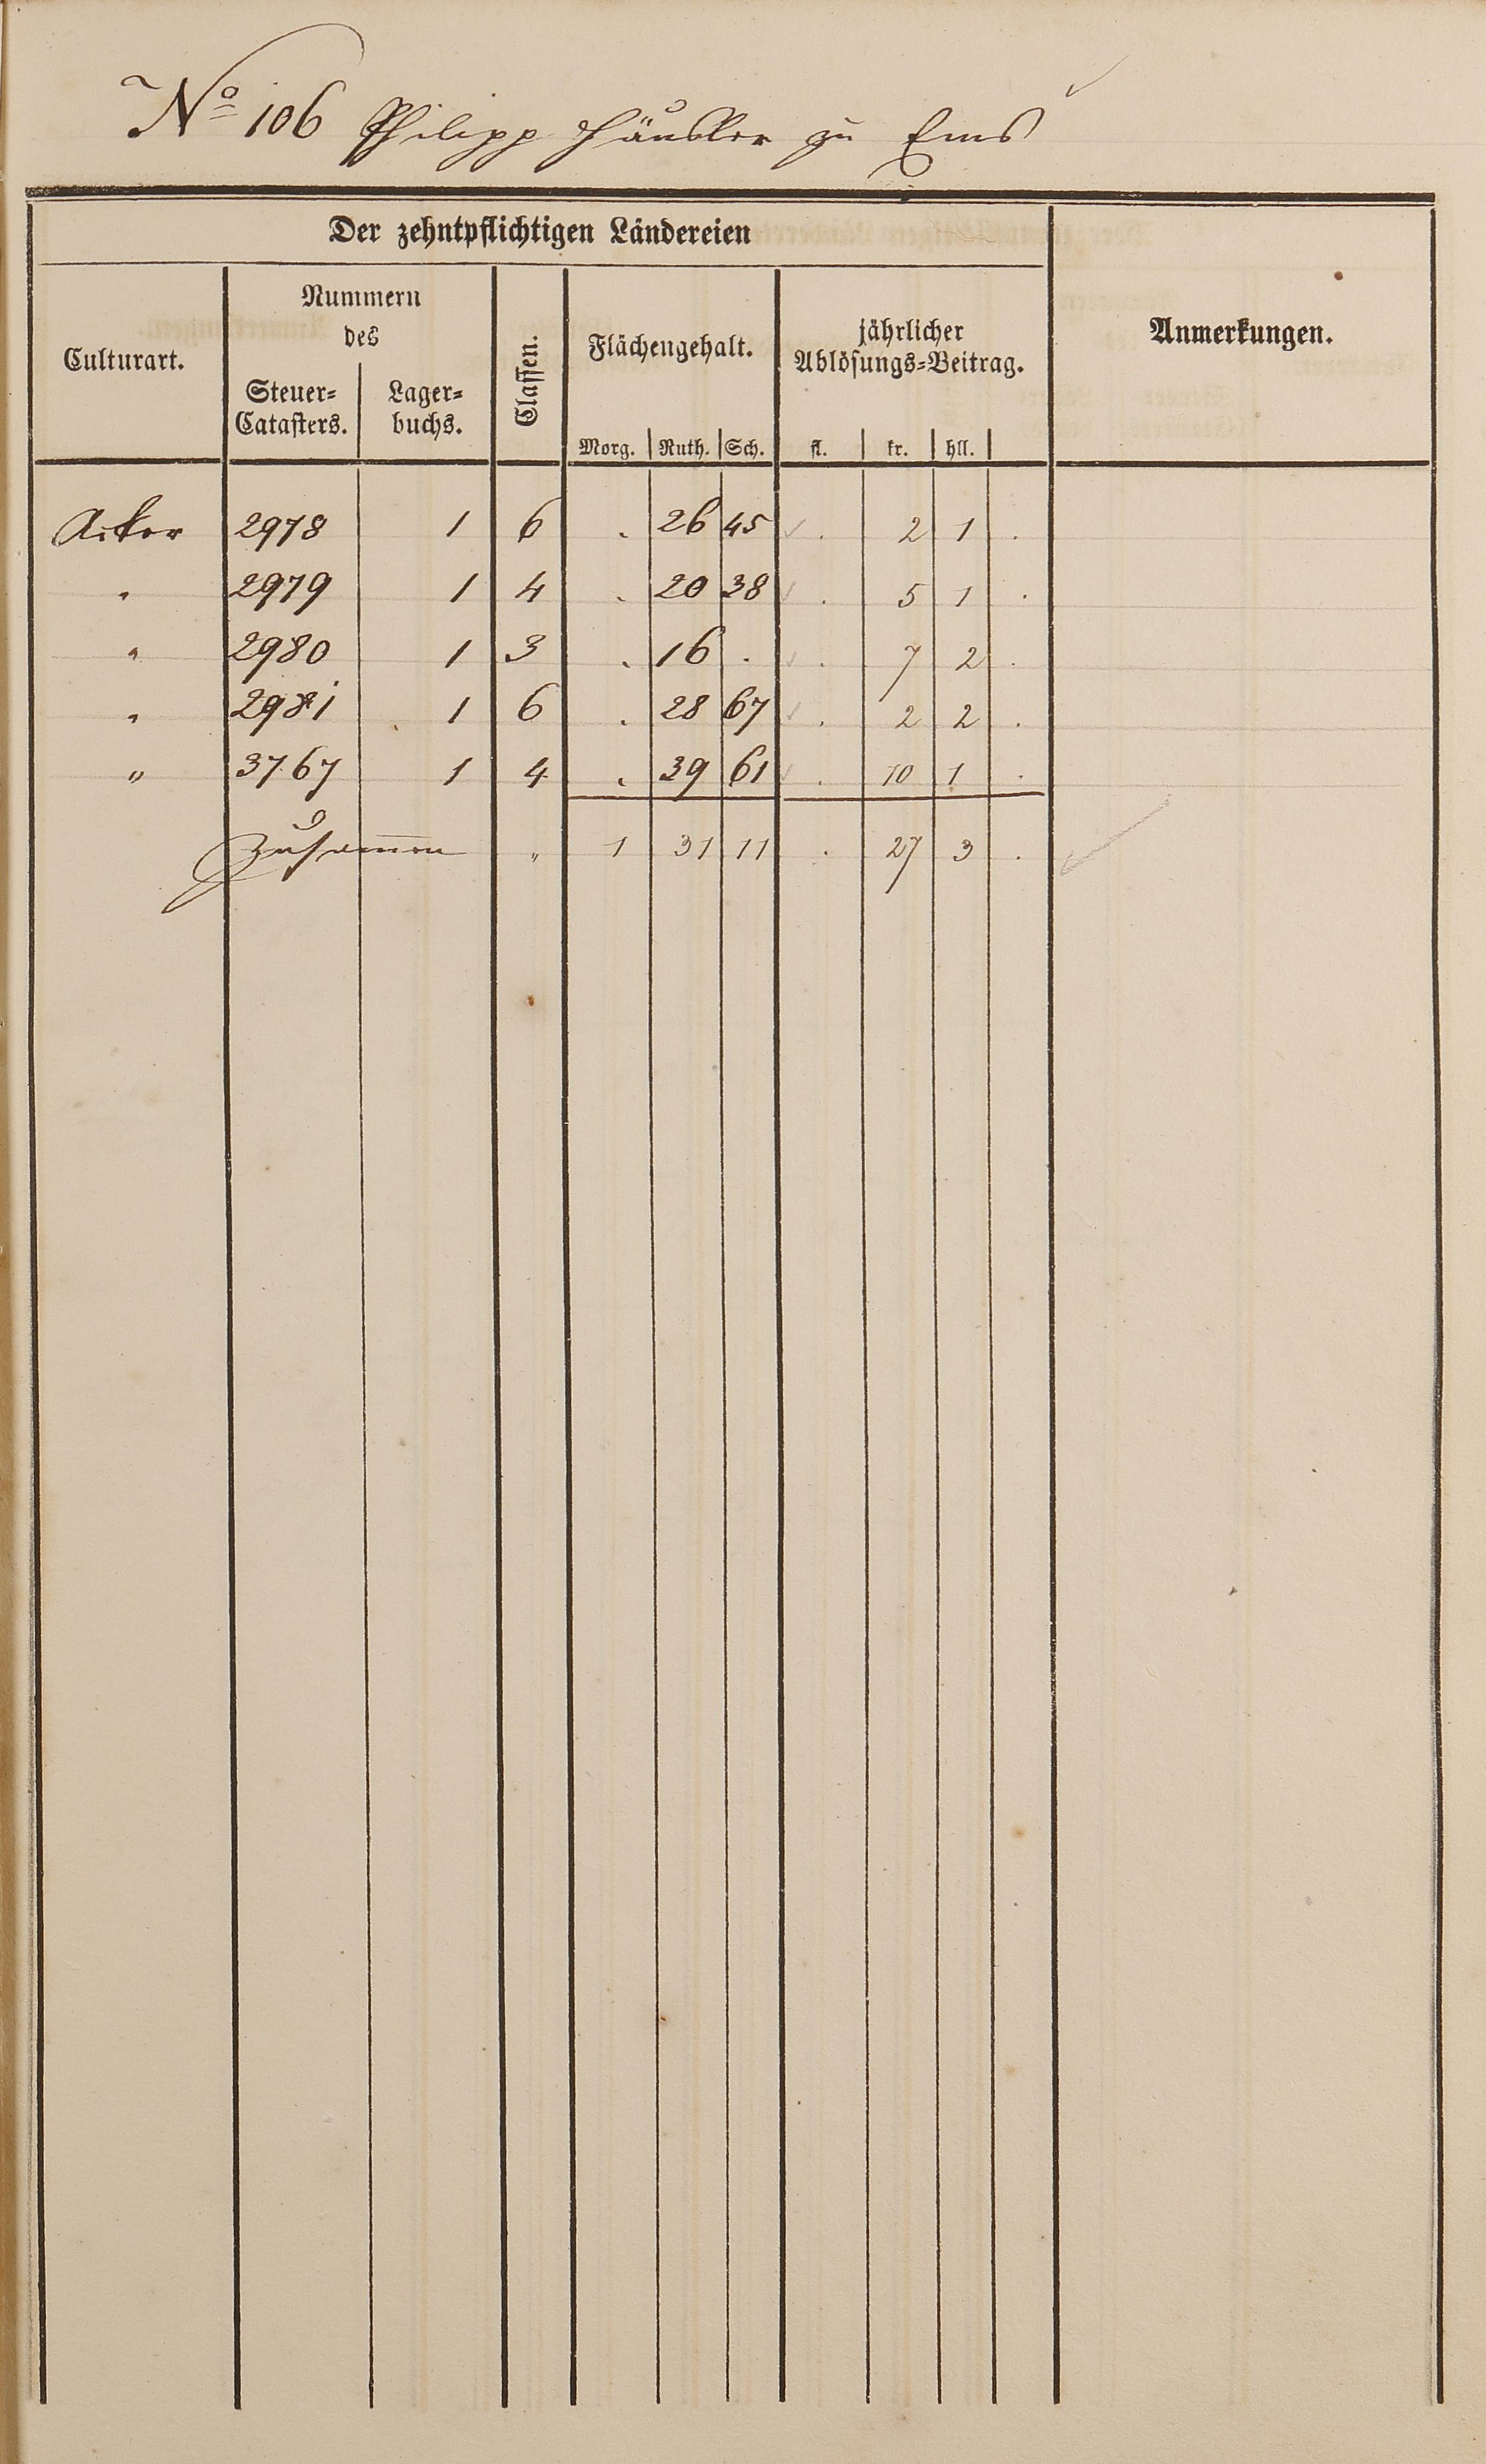 No 106 Philipp Häußler zu Ems
Der zehntpflichtigen Ländereien
Culturart.
Nummern
des
Steuer=
Catasters.
Lager=
buchs.
Classen.
Flächengehalt.
Morg. Ruth. Sch.
jährlicher
Ablösungs=Beitrag.
fl. kr. hll.
Anmerkungen.
Acker 2978 1 6 . 26 45 . 2 1 .
" 2979 1 4 . 20 38 . 5 1 .
" 2980 1 3 . 16 . . 7 2 .
" 2981 1 6 . 28 67 . 2 2 .
" 3767 1 4 . 39 61 . 10 1 .
Zusam̅en " 1 31 11 . 27 3 .